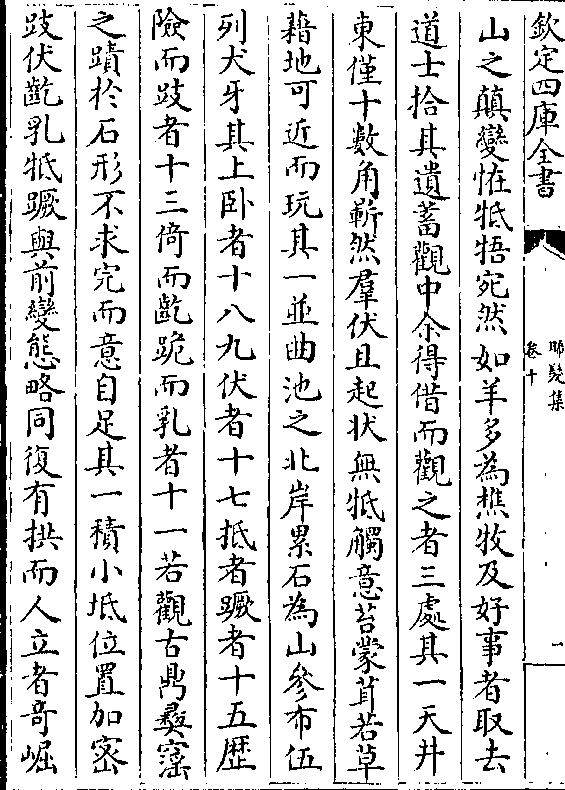 欽定四庫全書
晞髮集
卷十
一
山之顛變怪牴牾宛然如羊多為樵牧及好事者取去
道士拾其遺蓄觀中余得借而觀之者三處其一天井
東僅十數角嶄然羣伏且起状無牴觸意苔蒙茸若草
藉地可近而玩其一並曲池之北岸累石為山參布伍
列犬牙其上卧者十八九伏者十七抵者蹶者十五歴
險而跂者十三倚而齕跪而乳者十一若觀古鼎彝窑
之蹟於石形不求完而意自足其一積小坻位置加密
跂伏齕乳牴蹶與前變態略同復有拱而人立者奇崛